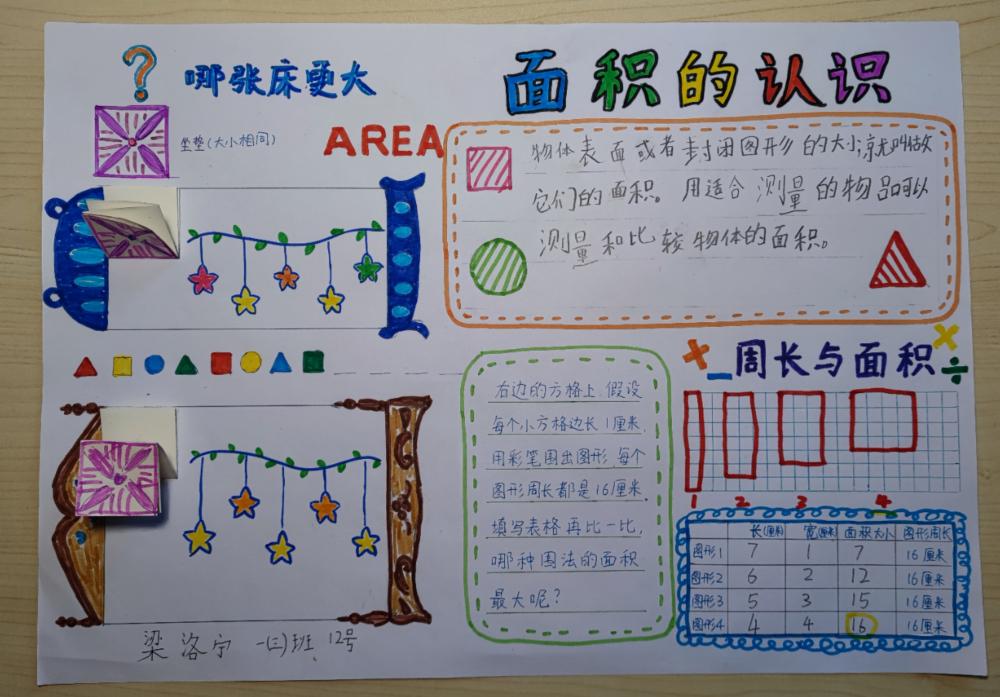 哪张床更大
坐垫(大小相同)
面积的认识
AREA
物体表面或者封闭图形的大小,就叫做
它们的面积。用适合测量的物品可以
测量和比较物体的面积。
右边的方格上,假设
每个小方格边长1厘米,
用彩笔围出图形,每个
图形周长都是16厘米,
填写表格再比一比,
哪种围法的面积
最大呢?
周长与面积
1 2 3 4
长(厘米) 宽(厘米) 面积大小 图形周长
图形1 7 1 7 16厘米
图形2 6 2 12 16厘米
图形3 5 3 15 16厘米
图形4 4 4 16 16厘米
梁洛宁 一(三)班 12号